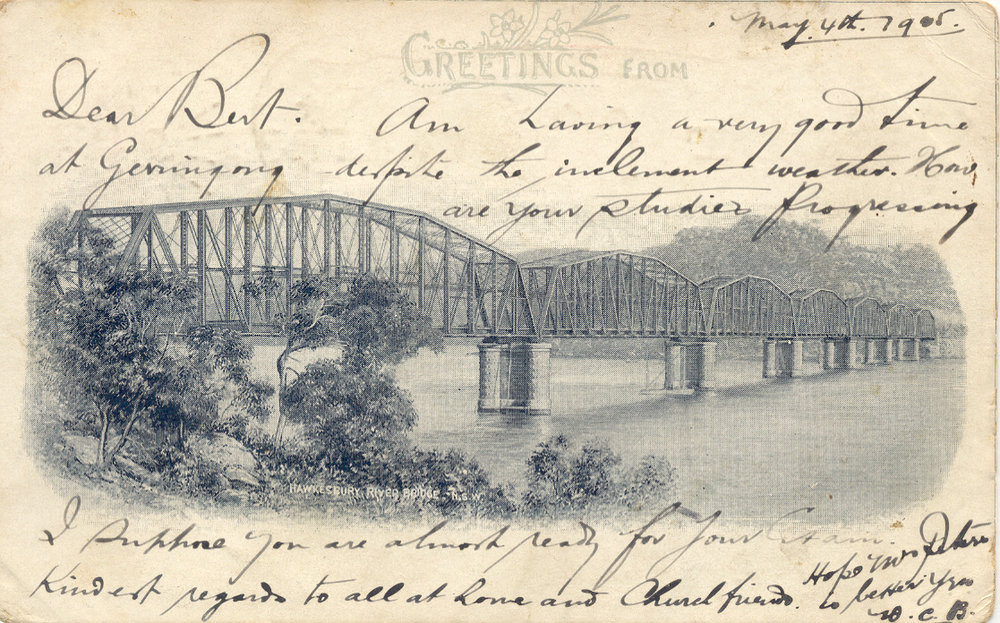 May. 4th. 1905.
GREETINGS FROM
Dear Bert. Am having a very good time
at Gerringong despite the inclement weather. How
are your studies Progressing
HAWKESBURY RIVER BRIDGE N.S.W.
I suppose you are almost ready for your Exam.
Hope Mrs Peters
Kindest regards to all at home and Church friends.
is better
W. C. B.